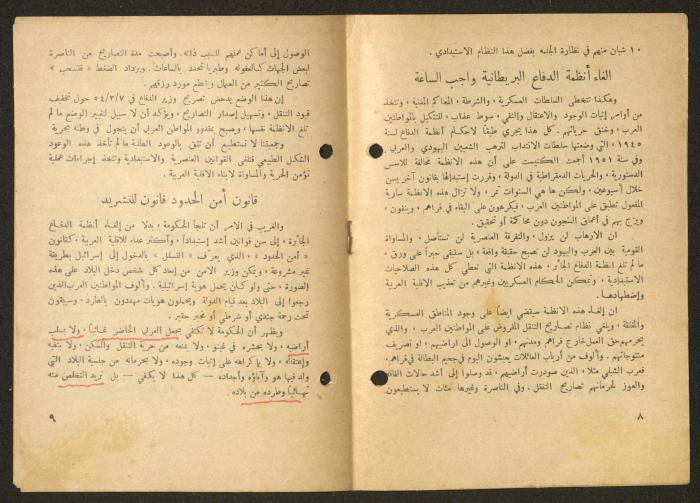 ١٠ شبان منهم في نظارة الجلمه بفضل هذا النظام الاستبدادي .
الغاء أنظمة الدفاع البريطانية واجب الساعة
وهكذا تتخطى السلطات العسكرية ، والشرطة ، المحاكم المدنية ، وتتخذ
من أوامر إثبات الوجود والاعتقال والنفي ، سوط عذاب ، للتنكيل بالمواطنين
العرب ، وخنق حرياتهم . كل هذا يجري طبقاً لاحكام أنظمة الدفاع لسنة
١٩٤٥ ، التي وضعتها سلطات الانتداب لترهب الشعبين اليهودي والعربي .
وفي سنة ١٩٥١ أجمعت الكنيست على أن هذه الانظمة مخالفة للاسس
الدستورية ، والحريات الدمقراطية في الدولة ، وقررت إستبدالها بقانون آخر يسن
خلال أسبوعين ، ولكن ها هي السنوات تمر ، ولا تزال هذه الانظمة سارية
المفعول تطبق على المواطنين العرب ، فيكرهون على البقاء في قراهم ، وينفون ،
ويزج بهم في أعماق السجون دون محاكمة أو تحقيق .
ان الارهاب لن يزول ، والتفرقة العنصرية لن تستأصل ، والمساواة
القومية بين العرب واليهود لن تصبح حقيقة واقعة ، بل ستبقى حبراً على ورق ،
ما لم تلغ أنظمة الدفاع الجائرة . هذه الانظمة التي تعطي كل هذه الصلاحيات
الاستبدادية ، وتمكن الحكام العسكريين وغيرهم من تعذيب الاقلية العربية
وإضطهادها .
ان إلغاء هذه الانظمة سيقضي ايضاً على وجود المناطق العسكرية
والمغلقة ، ويلغي نظام تصاريح التنقل المفروض على المواطنين العرب ، والذي
يحرمهم حق العمل خارج قراهم ومدنهم ، او الوصول الى اراضيهم ، او تصريف
منتوجاتهم . وألوف من أرباب العائلات يعيشون اليوم في جحيم البطالة في قراهم .
فعرب الشبلي مثلا ، الذين صودرت أراضيهم ، قد وصلوا إلى أشد حالات الفاقة
والعوز لحرمانهم تصاريح التنقل . وفي الناصرة وغيرها مئات لا يستطيعون
٨
الوصول إلى أماكن عملهم للسبب ذاته . وأصبحت مدة التصاريح من الناصرة
لبعض الجهات كالعفوله وطبريا تحدد بالساعات . ويزداد الضغط « فتسحب »
تصاريح الكثير من العمال وتقطع مورد رزقهم .
إن هذا الوضع يدحض تصريح وزير الدفاع في ٥٤/٣/٧ حول تخفيف
قيود التنقل ، وتسهيل إصدار التصاريح ، ويؤكد أن لا سبيل لتغيير الوضع ما لم
تلغ الانظمة نفسها ، ويصبح بمقدور المواطن العربي أن يتجول في وطنه بحرية
وجمعيتنا لا تستطيع أن تثق بالوعود الطلبة ما لم تأخذ هذه الوعود
الشكل الطبيعي فتلغى القوانين العنصرية والاستبدادية وتتخذ إجراءات عملية
تؤمن الحرية والمساواة لابناء الاقلية العربية .
قانون أمن الحدود قانون للتشريد
والغريب في الامر أن تلجأ الحكومة ، بدلا من إلغاء أنظمة الدفاع
الجائرة ، إلى سن قوانين أشد إستبداداً ، وأكثر عداء للاقلية العربية ، كقانون
« أمن الحدود » ، الذي يعرّف « التسلل » بالدخول إلى إسرائيل بطريقة
غير مشروعة ، ويمكن وزير الامن من إبعاد كل شخص دخل البلاد على هذه
الصورة ، حتى ولو كان يحمل هوية إسرائيلية . وألوف العرب الذين
رجعوا إلى البلاد بعد قيام الدولة ويحملون هويات مهددون بالطرد ، وسيبقون
تحت رحمة جندي أو شرطي أو مخبر حقير .
ويظهر أن الحكومة لا تكتفي بجعل العربي الحاضر غائباً ، ولا بسلب
أراضيه ، ولا بحشره في غيتو ، ولا بمنعه من حرية التنقل والسكن ، ولا بنفيه
وإعتقاله ، ولا بإكراهه على إثبات وجوده ، ولا بحرمانه من جنسية البلاد التي
ولد فيها هو وآباؤه وأجداده – كل هذا لا يكفي – بل تريد التخلص منه
نهائياً وطرده من بلاده .
٩